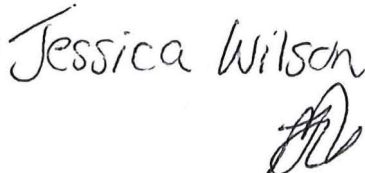 Jessica Wilson